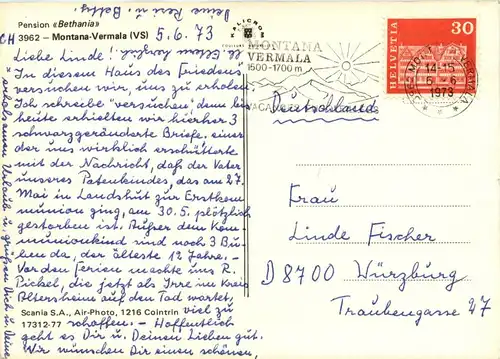 Pension «Bethania»
CH 3962 – Montana-Vermala (VS) 5.6.73
Liebe Linde!
In diesem Haus des Friedens
versuchen wir, uns zu erholen.
Ich schreibe "versuchen" denn bis
heute erhielten wir hierher 3
schwarzgeränderte Briefe, einer
der uns wirklich erschütterte
mit der Nachricht, daß der Vater
unseres Patenkindes, das am 27.
Mai in Landshut zur Erstkom
munion ging, am 30.5. plötzlich
gestorben ist. Außer dem Kom-
munionkind sind noch 3 Bu-
ben da, der älteste 12 Jahre. –
Vor den Ferien machte uns R.
Pickel, die jetzt als Irre im Kreis
Altersheim auf den Tod wartet,
viel zu
schaffen. – Hoffentlich
geht es Dir u. Deinen Lieben gut.
Wir wünschen Dir einen schönen,
erholsamen Urlaub u. grüßen Dich u. Deine
lb. Eltern herzlich
Deine Resi u. Betty.
Scania S.A., Air-Photo, 1216 Cointrin
17312-77
KALICROM
MONTANA
VERMALA
1500-1700 m
HELVETIA
30
3962 MONTANA-VERMALA
14-15
6. 6
1973
Deutschland
Frau
Linde Fischer
D 8700 Würzburg
Traubengasse 27